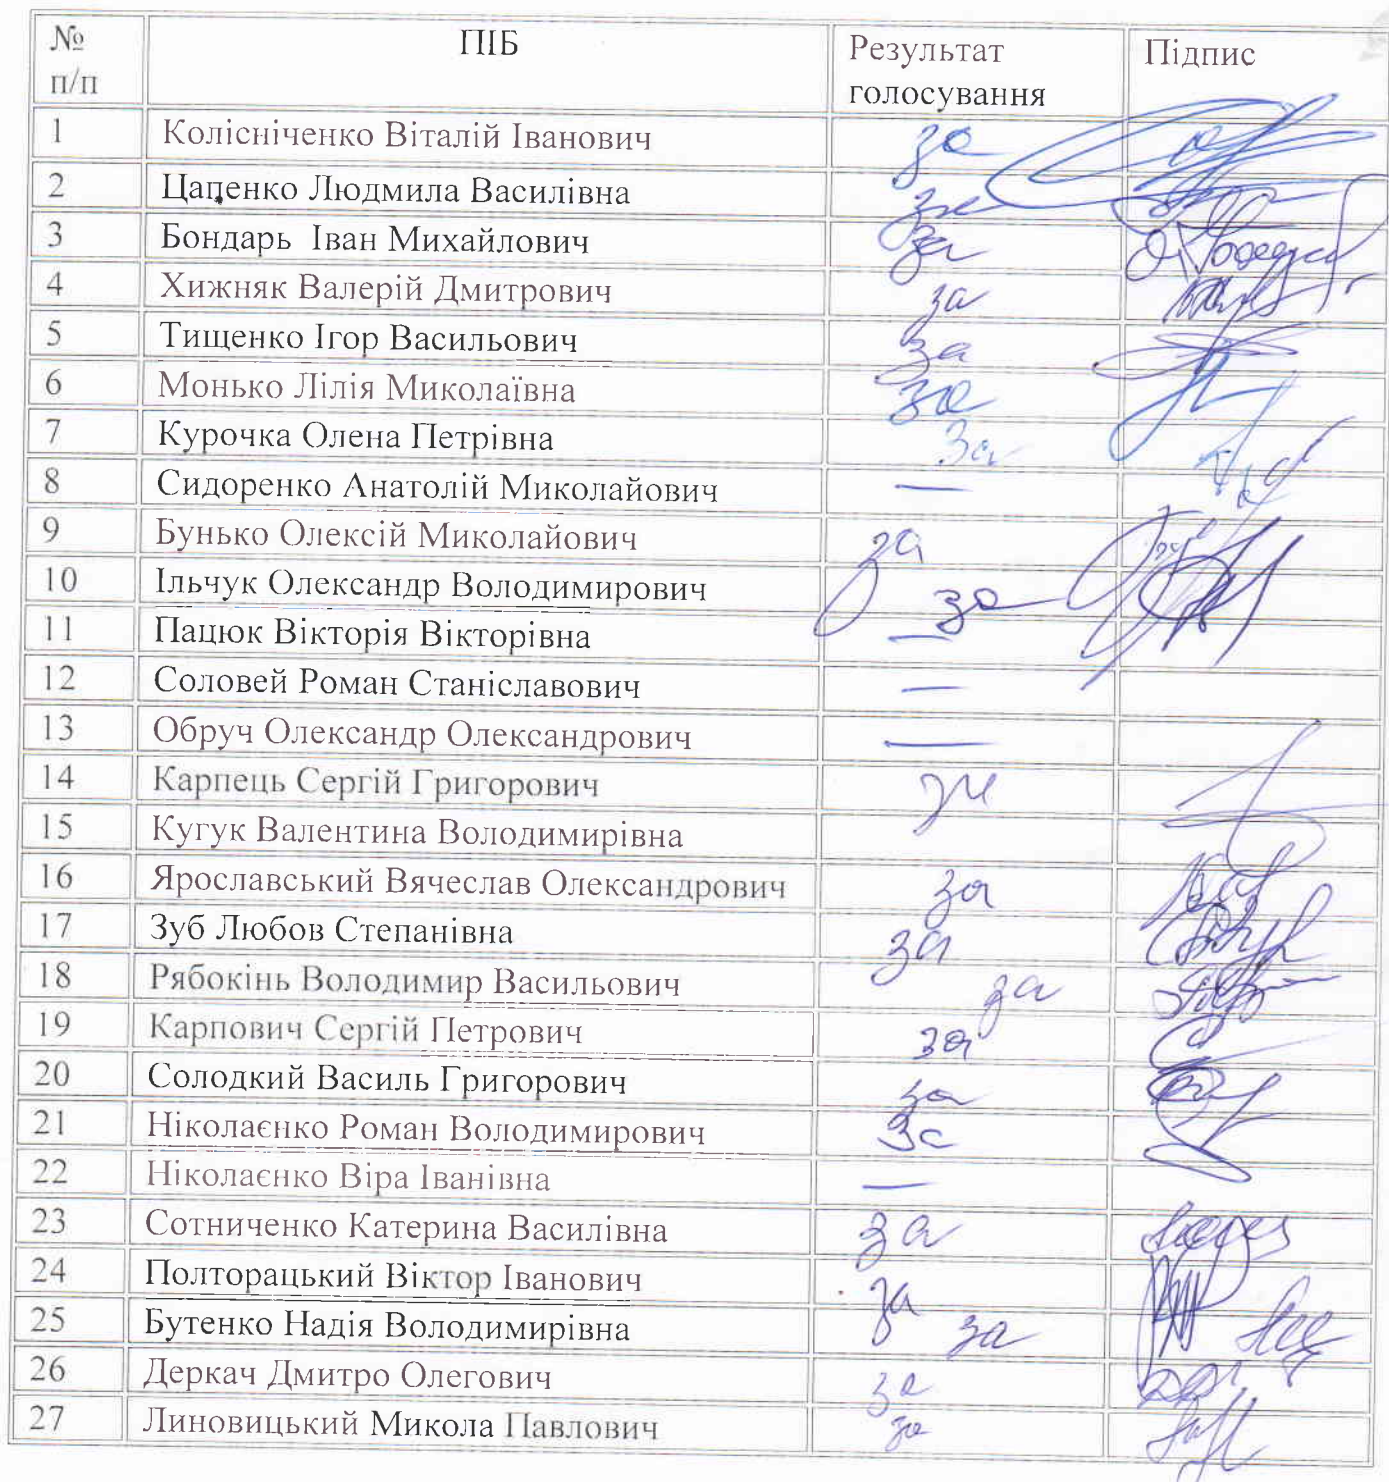 № п/п ПІБ Результат голосування Підпис
1 Колісніченко Віталій Іванович за
2 Цаценко Людмила Василівна за
3 Бондарь Іван Михайлович за
4 Хижняк Валерій Дмитрович за
5 Тищенко Ігор Васильович за
6 Монько Лілія Миколаївна за
7 Курочка Олена Петрівна За
8 Сидоренко Анатолій Миколайович —
9 Бунько Олексій Миколайович за
10 Ільчук Олександр Володимирович за
11 Пацюк Вікторія Вікторівна —
12 Соловей Роман Станіславович —
13 Обруч Олександр Олександрович —
14 Карпець Сергій Григорович за
15 Кугук Валентина Володимирівна
16 Ярославський Вячеслав Олександрович за
17 Зуб Любов Степанівна за
18 Рябокінь Володимир Васильович за
19 Карпович Сергій Петрович за
20 Солодкий Василь Григорович за
21 Ніколаєнко Роман Володимирович За
22 Ніколаєнко Віра Іванівна —
23 Сотниченко Катерина Василівна за
24 Полторацький Віктор Іванович за
25 Бутенко Надія Володимирівна за
26 Деркач Дмитро Олегович за
27 Линовицький Микола Павлович за